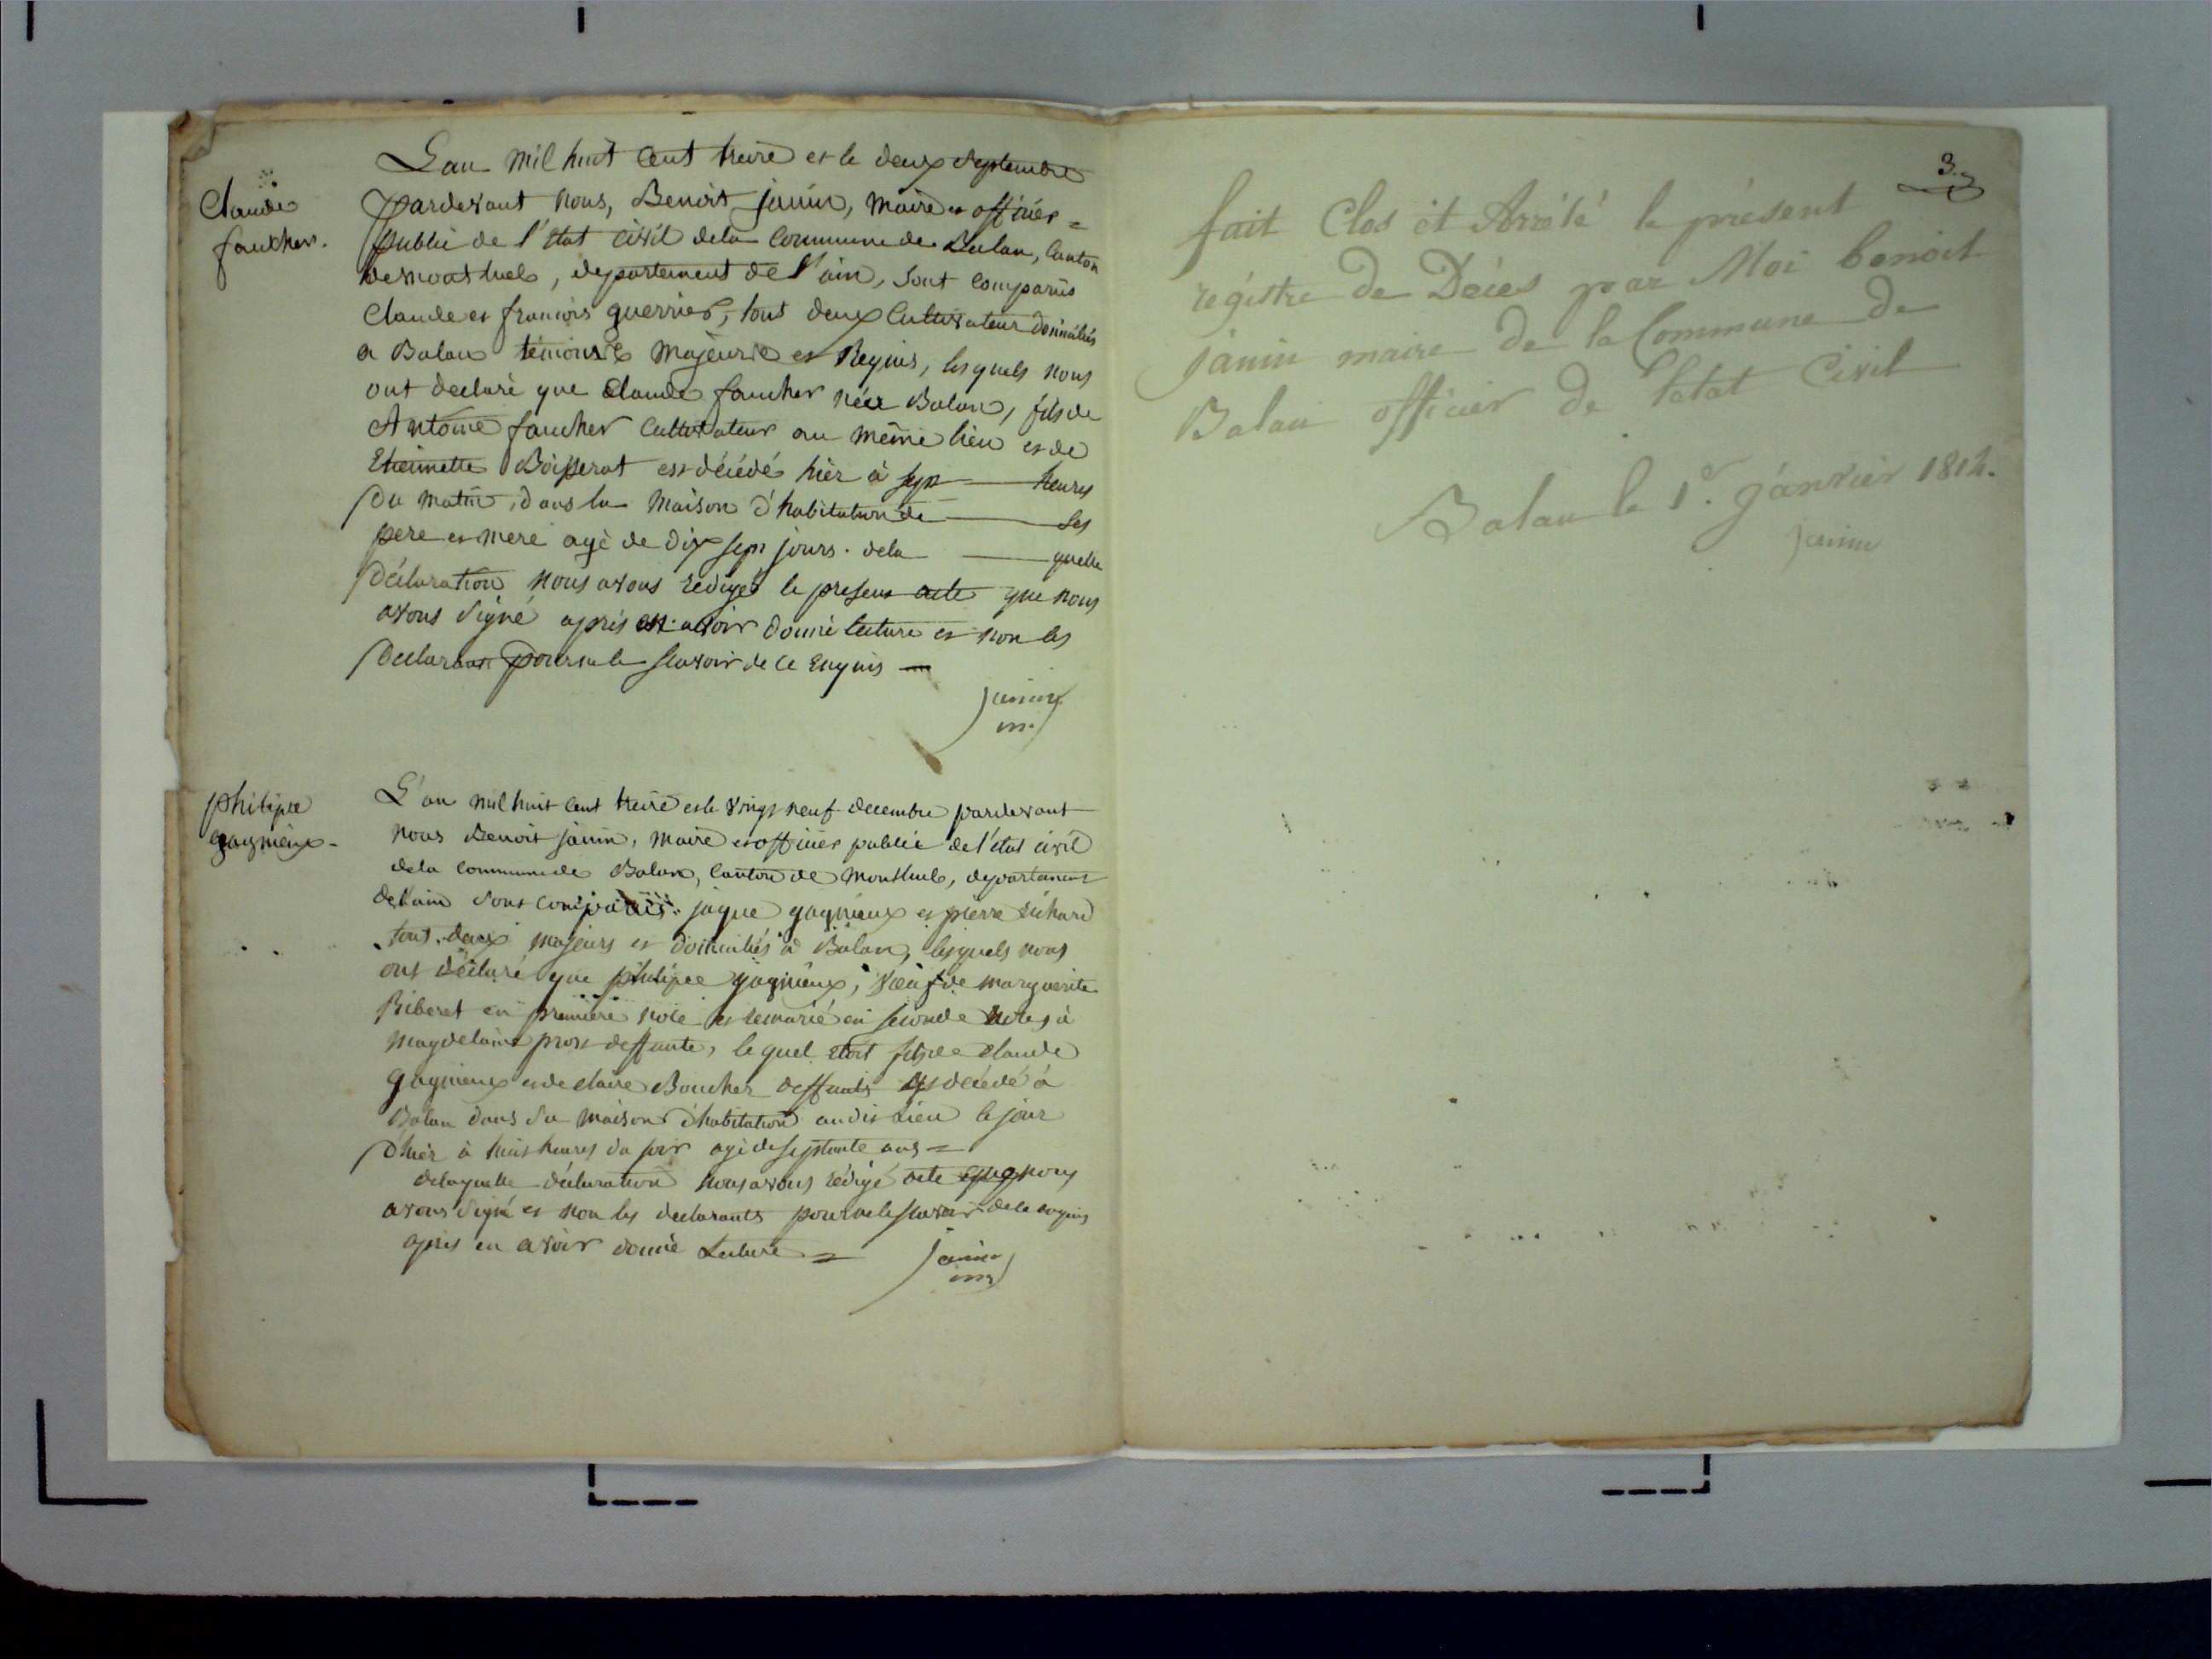 Claude
faucher.
L'an mil huit Cent treize et le deux septembre
pardevant nous, Benoit janin, maire et officier =
public de l'état civil dela Commune de Balan, Canton
de montluel, departement de l'ain, sont comparus
Claude et francois guerrier, tous deux Cultivateur domiciliés
a Balan témoins majeurs et Requis, lesquels nous
ont declaré que Claude faucher née Balan, fils de
Antoine faucher Cultivateur au même lieu et de
Etiennette Boisserat est décédé hièr à sept heures
du matin, dans la maison d'habitation de ses
pere et mere agé de dix sept jours. dela quelle
déclaration nous avons redigé le present acte que nous
avons signé après en avoir donné lecture et non les
declarant pour ne le scavoir de ce Enquis
janin
m.
philipe
gagnieux -
L'an mil huit Cent treize et le vingt neuf decembre pardevant
nous Benoit janin, maire et officier public de l'état civil
dela commune de Balan, Canton de montluel, departement
de l'ain sont comparus jaque gagnieux et pierre
tout deux majeurs et domiciliés à Balan, lesquels nous
ont déclaré que philipe gagnieux, veuf de marguerite
Riberet en premiere noce et remarié en seconde noces à
magdelaine prost deffunte, le quel étoit fils de Claude
gagnieux et de claire Boucher deffunts est décédé à
Balan dans sa maison d'habitation audit Lieu le jour
d'hièr à huit heures du soir agé de septante ans =
delaquelle déclaration nous avons rédigé acte que nous
avons signé et non les declarants pour ne le scavoir de ce enquis
apres en avoir donné Lecture =
janin
m.
3.
fait Clos et Arrêté le présent
régistre de Décès par Moi benoit
janin maire de la Commune de
Balan officier de l'état Civil
Balan le 1er. janvier 1812.
janin